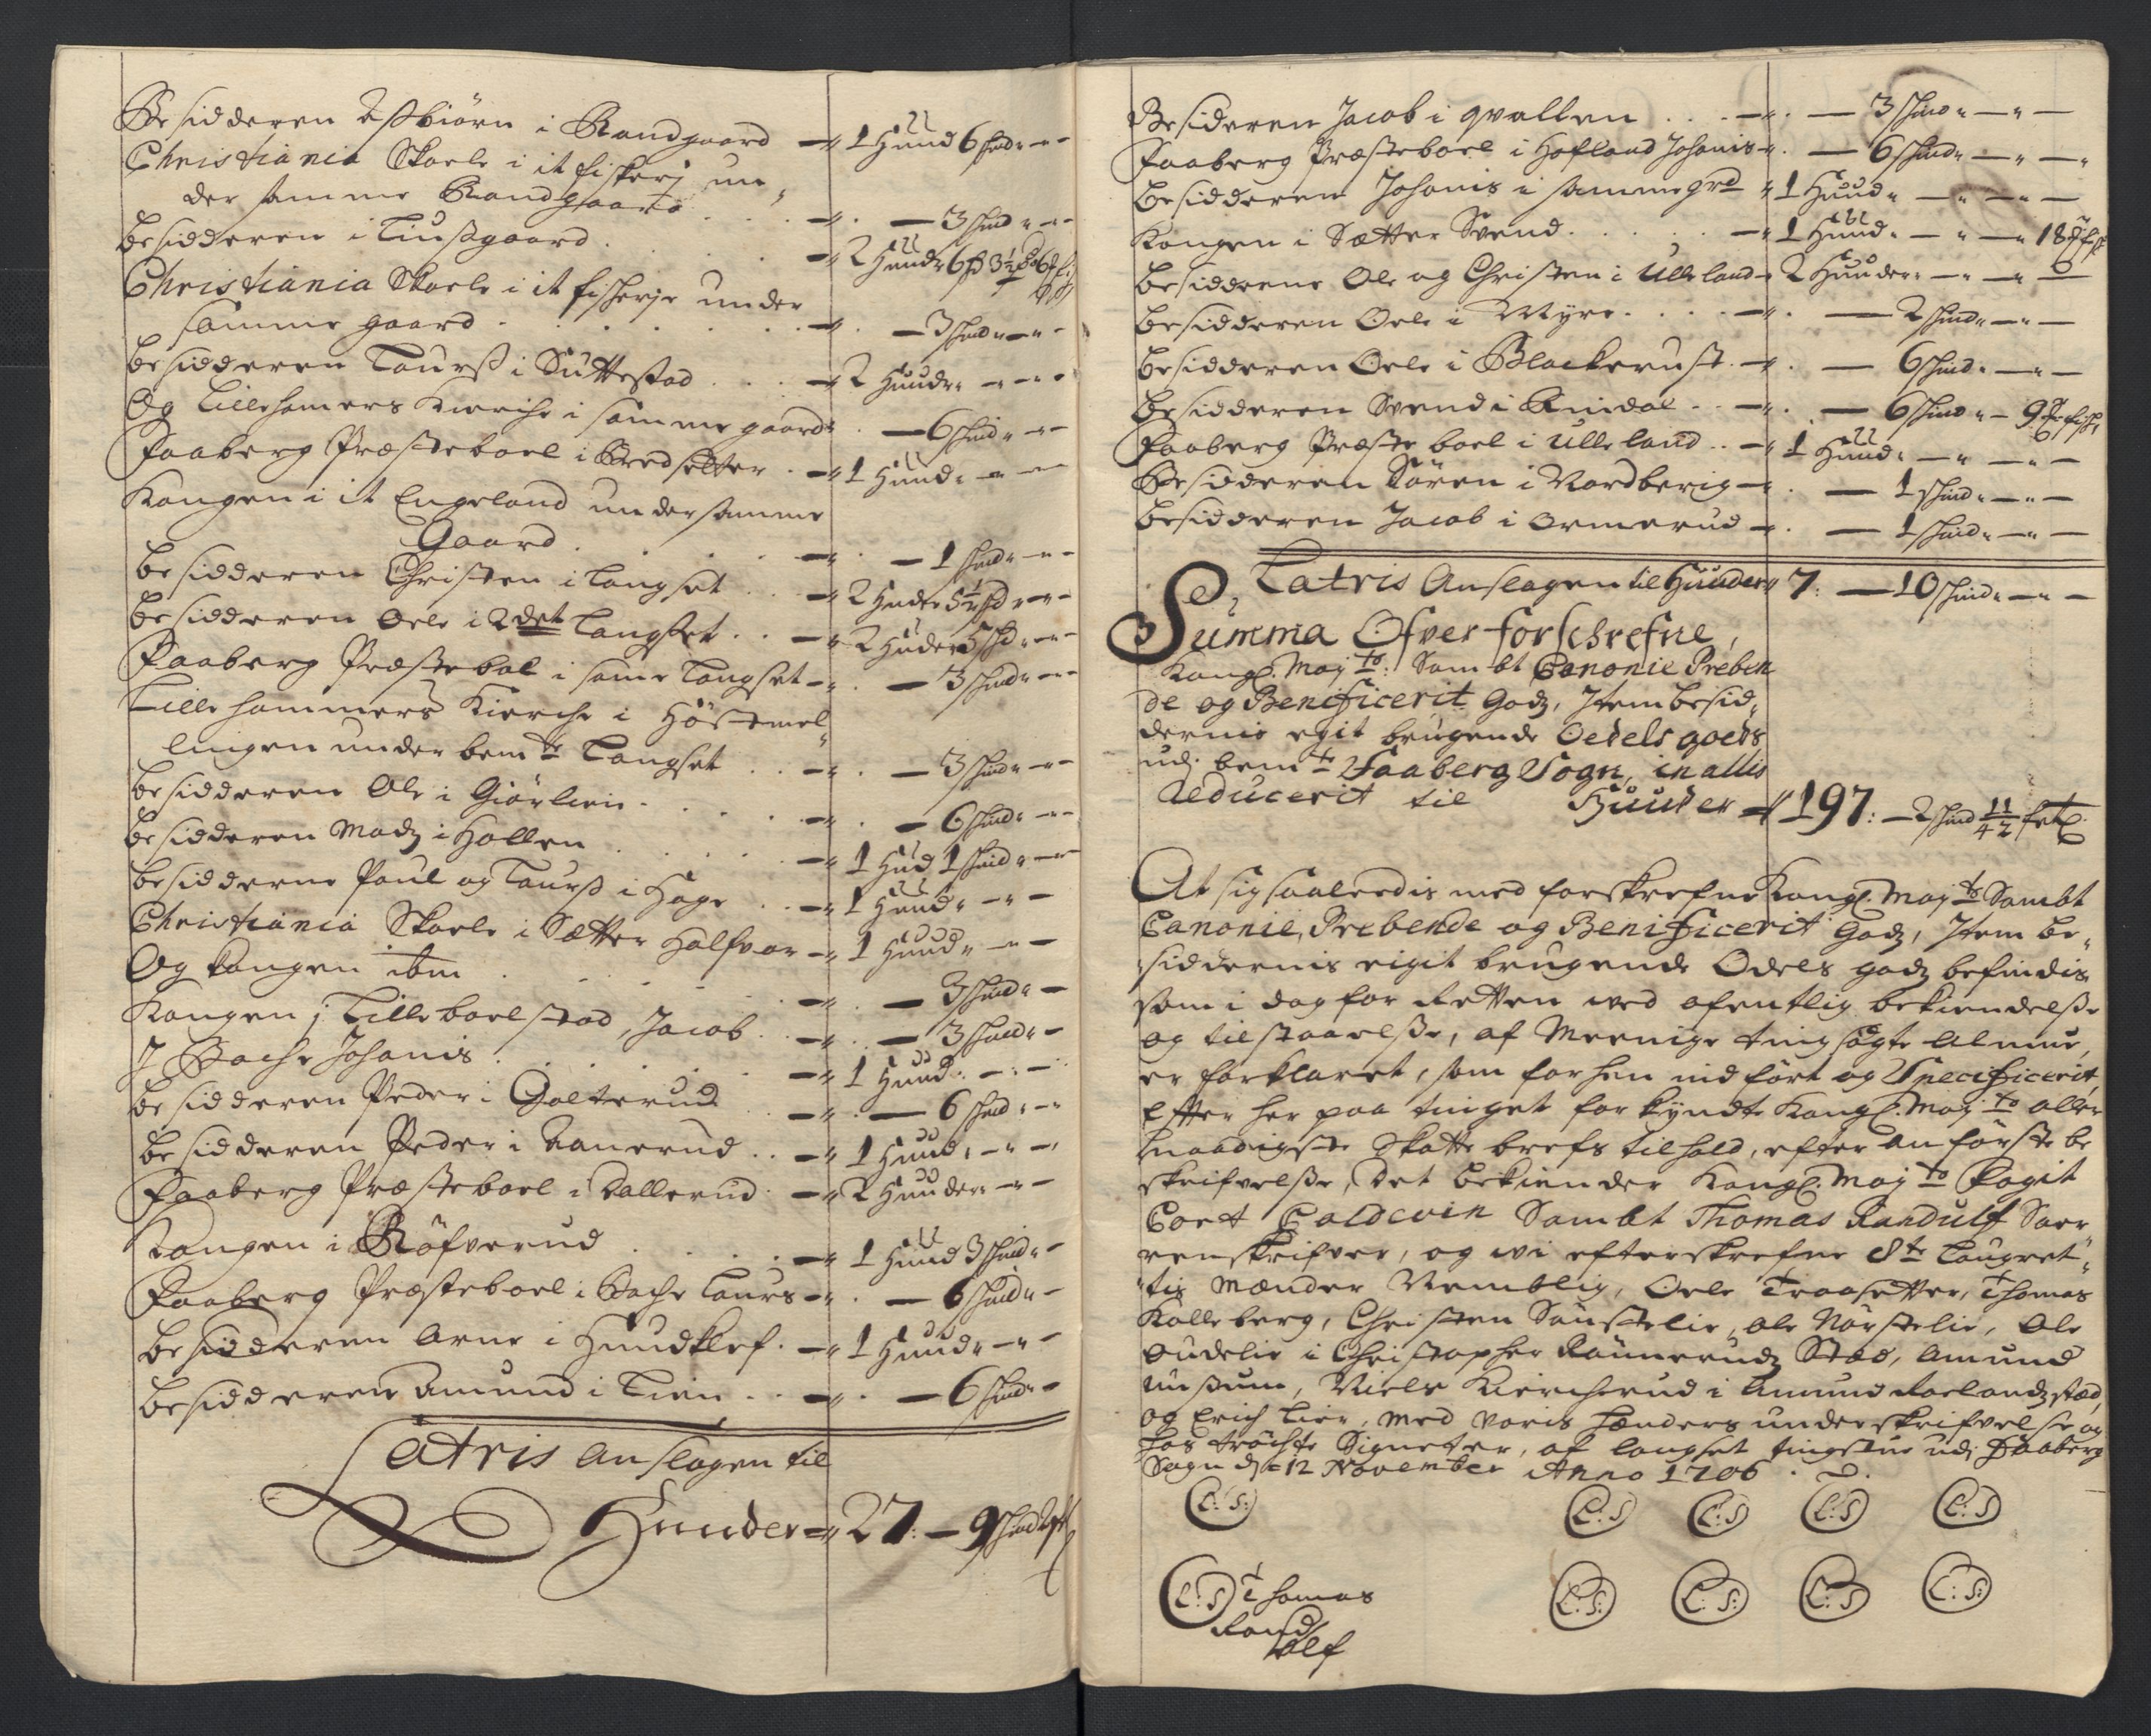 Besidderen Asbiörn i Randgaard — 1 Huud 6 shind
Christiania Skoele i it fiskerj un-
der samme Randgaard — 3 shind
besidderen i Liusgaard — 2 Huude 6
Christiania Skoele i it fisherje under
samme gaard — 3 shind
besidderen Laurs i Suttestad — 2 Huude
Og Lillehamers Kierche i samme gaard — 6 shind
Faaberg Præsteboel i Bredsetter — 1 Huud
Kongen i it Engeland under samme
Gaard — 1 shind
besidderen Christen i Langset — 2 Huder
besidderen Oele i 2det Langset — 2 Huder 5 shd
Faaberg Præstebol i same Langset — 3 shind
Lillehammers Kierche i Höstmel-
lingen under bemte Langset — 3 shind
besidderen Ole i Giörlien — 6 shind
besidderen Madz i Hollen — 1 Hud 1 shind
besidderne Poul og Laurs i Hage — 1 Huud
Christiania Skoele i Sætter Halfvor — 1 Huud
Og Kongen ibm — 3 shind
Kongen i Lilleboelstad, Jacob — 3 shind
I Bache Johanis — 1 Huud
besidderen Peder i Golterud — 6 shind
besidderen Peder i — 1 Huud
Faaberg Præsteboel i Dallerud — 2 Huuder
Kongen i Röfverud — 1 Huud 3 shind
Faaberg Præsteboel i Bache Laurs — 6 shind
besidderen Arne i Hundklef — 1 Huud
besidderen Amund i Lien — 6 shind
Latris anslagen til
Huuder 27: — 9 shind
Besideren Jacob i qvallen — 3 shind
Faaberg Præsteboel i Hofland Johanis — 6 shind
besidderen Johanis i samme grd 1 Huud
Kongen i Sætter Svend — 1 Huud — 18
besidderne Ole og Christen i Ulleland 2 Huuder
besidderen Oele i Myre — 2 shind
besidderen Oele i Blackerust — 6 shind
besidderen Svend i Rindal — 6 shind — 9
Faaberg Præsteboel i Ulleland — 1 Huud
Besidderen Sören i Nordberig — 1 shind
besidderen Jacob i Ormerud — 1 shind
Latris Anslagen til Huuder 7: — 10 shind
Summa Ofver forschrefne,
Kongl. Mayts: Sambt Canonie Preben
de og Beneficerit Godz, Item besid-
dernis egit brugende Oedels goeds
udj bemte Faaberg Sogn, in allis
Reducerit til Huuder 197: — 2 shind 11/42
At sig saaleedis med forskrefne Kongl. Mayts Sambt
Canonie, Prebende og Benificerit Godz, Item be-
siddernis eigit brugende Odels godz befindis
som i dag for Retten ved ofentlig bekiendelse
og tilstaaelse, af Meenige tingsögte Almue,
er forklaret, som forhen indfört og Specificerit,
Efter her paa tinget forkyndte Kongl. Mayts aller
naadigste Skatte brefs tilhold, efter an förste be
skrifvelse, Det bekiender Kongl. Mayts fogit
Cort Coldevin Sambt Thomas Randulf Soer-
renskrifver, og vi efterskrefne 8te Laugret-
tis Mænder Nemblig, Oele Traasetter, Thomas
Kalleberg, Christen Sönstelie, Ole Nörstelie, Ole
Oudelie i Christopher Rönnerudz Sted, Amund
, Niels Kiercherud i Amund Roelandz sted,
og Erich Lier, med voris hænders underskrifvelse og
hos tröchte Signeter, af Langset tingstue udj Faaberg
Sogn d: 12 November Anno 1706.
L: S: L: S L: S L: S L: S
L: S Thomas L: S: L: S: L: S L: S:
Rand
olf